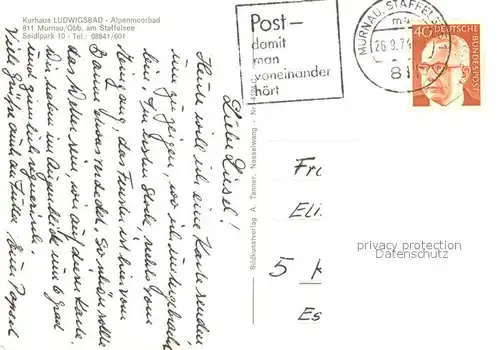 Kurhaus LUDWIGSBAD - Alpenmoorbad
811 Murnau/Obb. am Staffelsee
Seidlpark 10 - Tel.: 08841/601
Post—
damit
man
voneinander
hört
MURNAU, STAFFELSEE
26.9.74
811
40
DEUTSCHE
BUNDESPOST
Liebe Liesel!
Heute will ich eine Karte senden
um zu zeigen, wo ich im
Im ersten Stock, rechts vom
das Fenster ist hier vom
Baum So schön sollte
das Wetter sein, wie auf dieser Karte.
Wir haben im Augenblick um 6 Grad
und ziemlich regnerisch.
Viele Grüße auch an
Bildkunstverlag A. Tanner, Nesselwang - Nr.
Fr
Eli
5 K
Es
privacy protection
Datenschutz